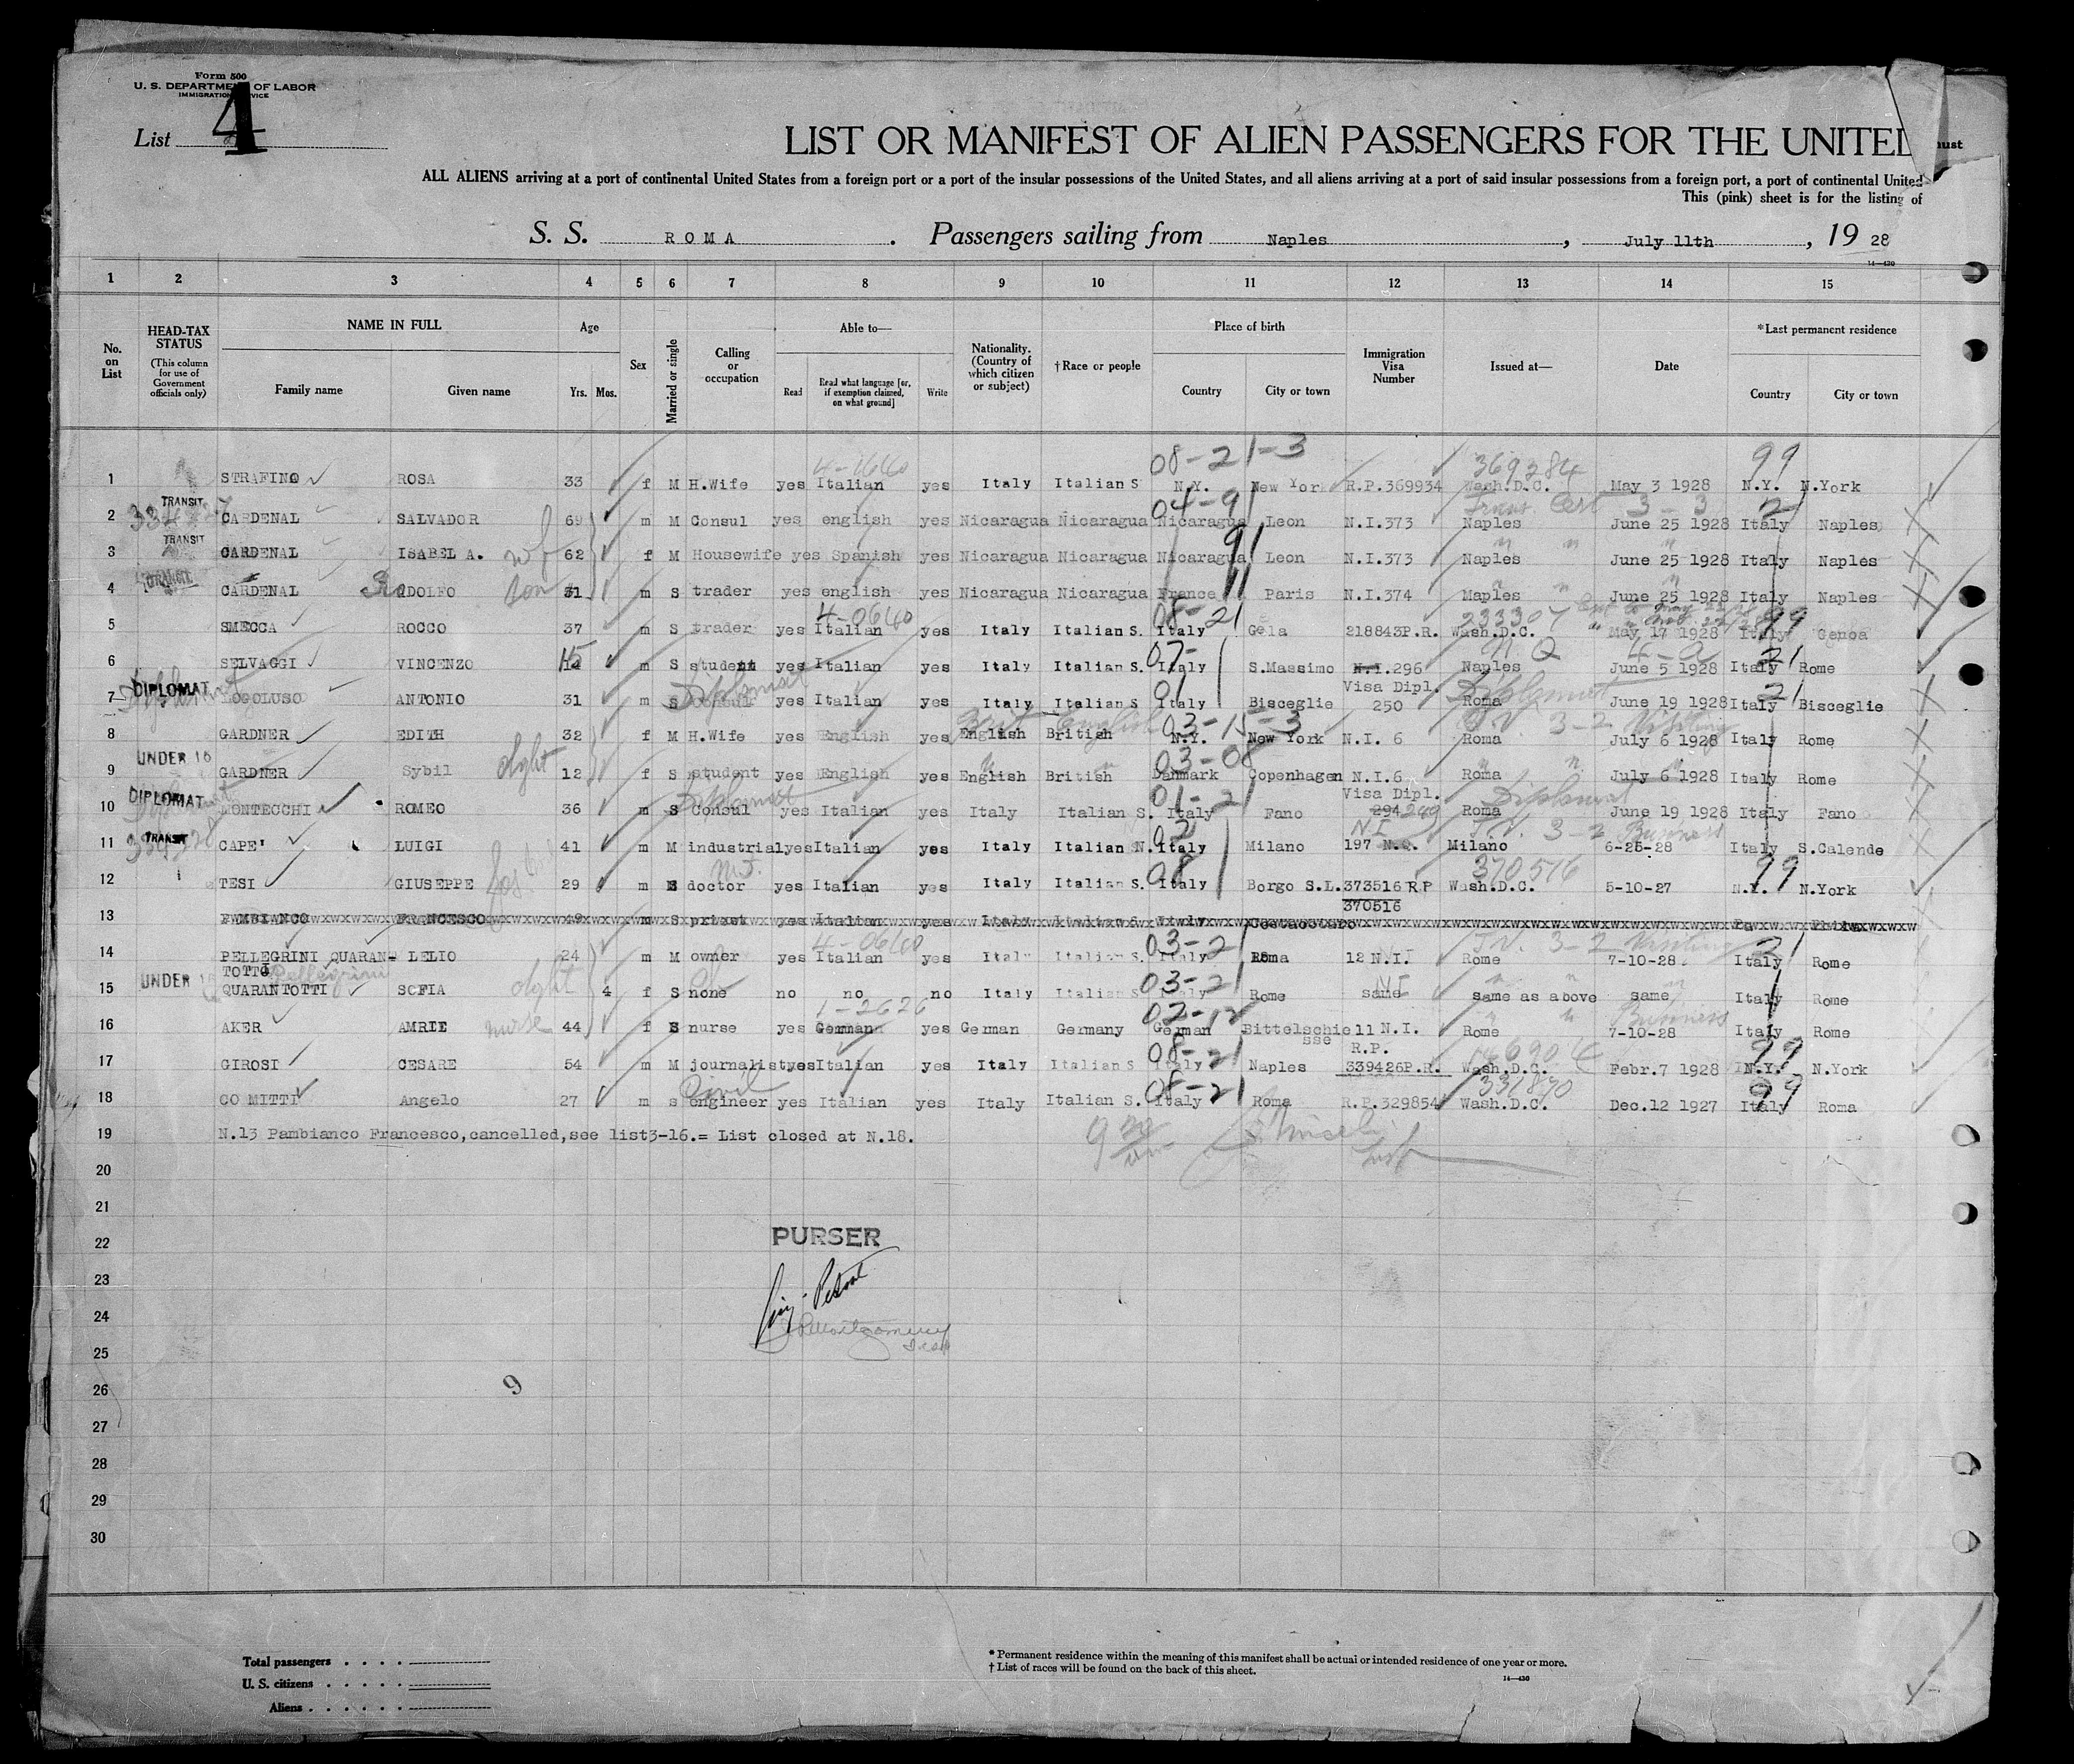 Form 500
U. S. DEPARTMENT OF LABOR
IMMIGRATION SERVICE
List 4
LIST OR MANIFEST OF ALIEN PASSENGERS FOR THE UNITED
ALL ALIENS arriving at a port of continental United States from a foreign port or a port of the insular possessions of the United States, and all aliens arriving at a port of said insular possessions from a foreign port, a port of continental United
This (pink) sheet is for the listing of
S. S. ROMA . Passengers sailing from Naples , July 11th , 19 28
14—430
1 2 3 4 5 6 7 8 9 10 11 12 13 14 15
No. on List
HEAD-TAX STATUS (This column for use of Government officials only)
NAME IN FULL Family name Given name
Age Yrs. Mos.
Sex
Married or single
Calling or occupation
Able to— Read Read what language [or, if exemption claimed, on what ground] Write
Nationality. (Country of which citizen or subject)
†Race or people
Place of birth Country City or town
Immigration Visa Number
Issued at—
Date
*Last permanent residence Country City or town
08-21-3 99
4-1640 369284
1 STRAFINO ROSA 33 f M H.Wife yes Italian yes Italy Italian S N.Y. New York R.P.369934 Wash.D.C. May 3 1928 N.Y. N.York
TRANSIT 04-91 Trans. Cert 3-3 21
2 CARDENAL SALVADOR 69 m M Consul yes english yes Nicaragua Nicaragua Nicaragua Leon N.I.373 Naples June 25 1928 Italy Naples
TRANSIT 91
3 CARDENAL ISABEL A. wf 62 f M Housewife yes Spanish yes Nicaragua Nicaragua Nicaragua Leon N.I.373 Naples June 25 1928 Italy Naples
TRANSIT 11
4 CARDENAL RoDOLFO son 31 m S trader yes english yes Nicaragua Nicaragua France Paris N.I.374 Maples June 25 1928 Italy Naples
4-0640 08-21 233307 99
5 SMECCA ROCCO 37 m S trader yes Italian yes Italy Italian S. Italy Gela 218843P.R. Wash.D.C. May 17 1928 Italy Genoa
15 07- N.Q 4-a 21
6 SELVAGGI VINCENZO 14 m S student yes Italian yes Italy Italian S. Italy S.Massimo N.I.296 Naples June 5 1928 Italy Rome
DIPLOMAT Diplomat 01 Visa Dipl. Diplomat 21
7 LOGOLUSO ANTONIO 31 m S Consul yes Italian yes Italy Italian S Italy Bisceglie 250 Roma June 19 1928 Italy Bisceglie
Brit English 03-15-3 T.V. 3-2 Visiting
8 GARDNER EDITH 32 f M H.Wife yes English yes English British N.Y. New York N.I. 6 Roma July 6 1928 Italy Rome
UNDER 16 03-08
9 GARDNER Sybil dght 12 f S student yes English yes English British Danmark Copenhagen N.I.6 Roma July 6 1928 Italy Rome
DIPLOMAT Diplomat 01-21 Visa Dipl. Diplomat
10 MONTECCHI ROMEO 36 m S Consul yes Italian yes Italy Italian S. Italy Fano 294 249 Roma June 19 1928 Italy Fano
TRANSIT N.I T.V. 3-2 Business
11 CAPE' LUIGI 41 m M industrial yes Italian yes Italy Italian N. Italy Milano 197 N.Q. Milano 6-25-28 Italy S.Calende
M.D. 08 370516 99
12 TESI GIUSEPPE 29 m S doctor yes Italian yes Italy Italian S. Italy Borgo S.L. 373516 R P Wash.D.C. 5-10-27 N.Y. N.York
370516
13 PAMBIANCO FRANCESCO 49 m S priest yes Italian yes Italy Italian S. Italy Costacciaro Pa Phila
4-0640 03-21 T.V. 3-2 Visiting 21
14 PELLEGRINI QUARAN- LELIO 24 m M owner yes Italian yes Italy Italian S. Italy Roma 12 N.I. Rome 7-10-28 Italy Rome
TOTTI Pellegrini
UNDER 16 dght 03-21 NI
15 QUARANTOTTI SOFIA 4 f S none no no no Italy Italian S Italy Rome same same as above same Italy Rome
1-2626 02-12 Business
16 AKER AMRIE nurse 44 f S nurse yes German yes German Germany German Bittelschiell N.I. Rome 7-10-28 Italy Rome
sse R.P.
08-21 99
17 GIROSI CESARE 54 m M journalist yes Italian yes Italy Italian S Italy Naples 339426P.R. Wash.D.C. Febr.7 1928 N.Y. N.York
Civil 08-21 331870 99
18 CO MITTI Angelo 27 m s engineer yes Italian yes Italy Italian S. Italy Roma R.P.329854 Wash.D.C. Dec.12 1927 Italy Roma
19 N.13 Pambianco Francesco,cancelled,see list3-16.= List closed at N.18.
20
21
22 PURSER
23
24
25
26 9
27
28
29
30
Total passengers
U. S. citizens
Aliens
* Permanent residence within the meaning of this manifest shall be actual or intended residence of one year or more.
† List of races will be found on the back of this sheet.
14—430